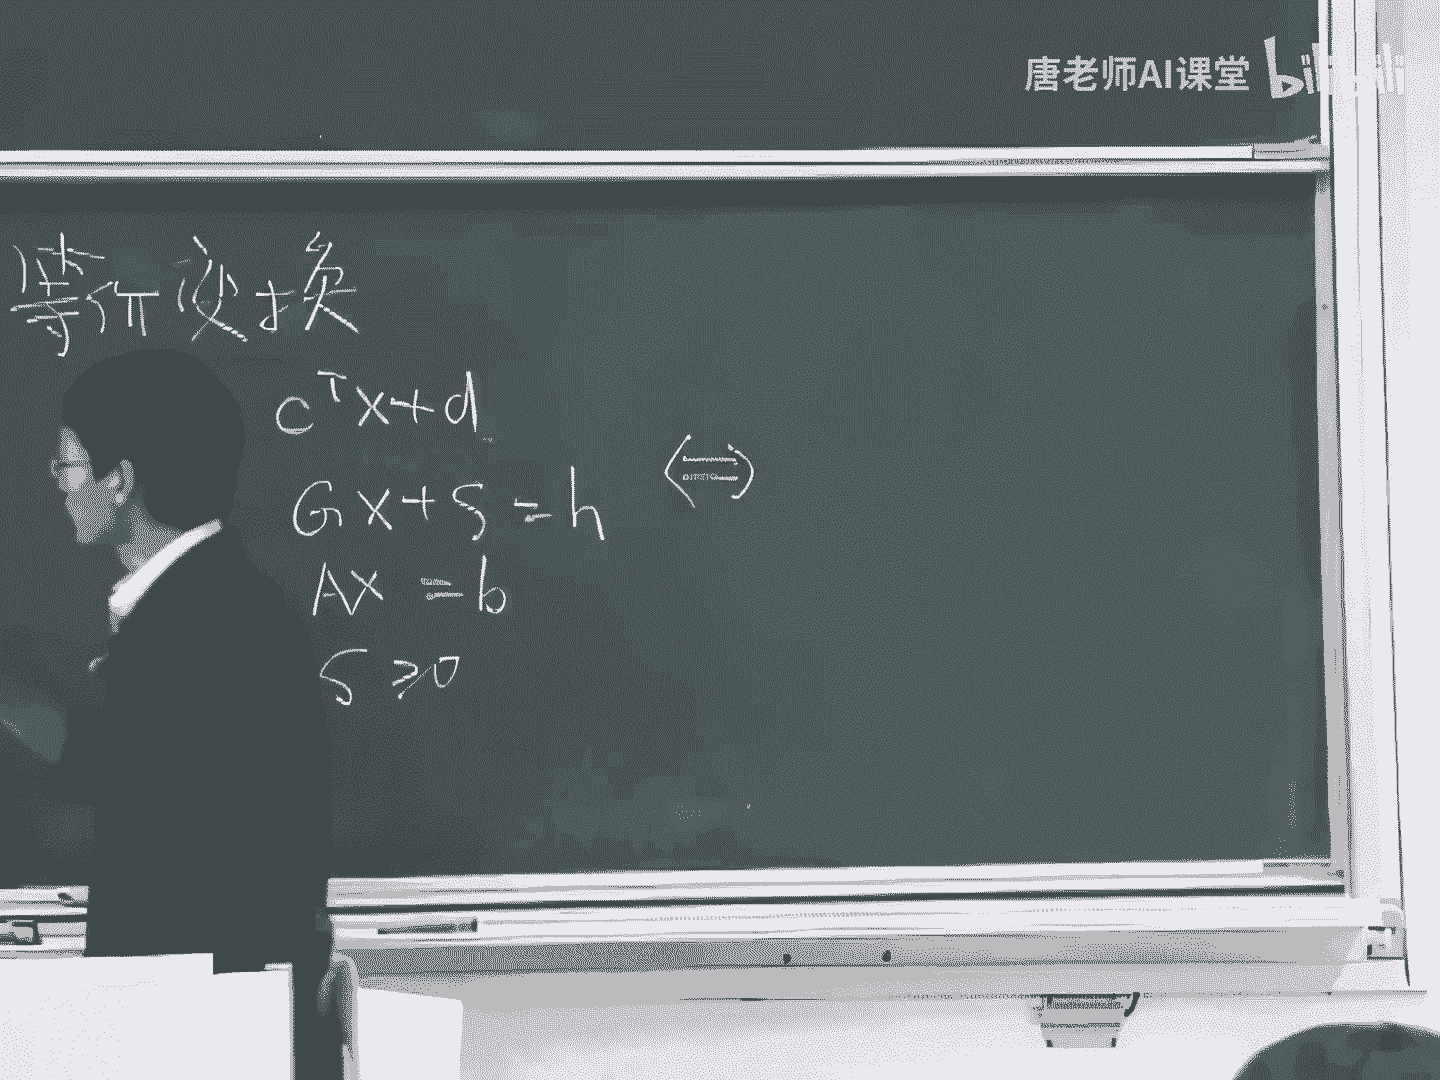 唐老师AI课堂 bilibili
等价变换
c^T x + d
Gx + s = h
⇔
Ax = b
s ≥ 0